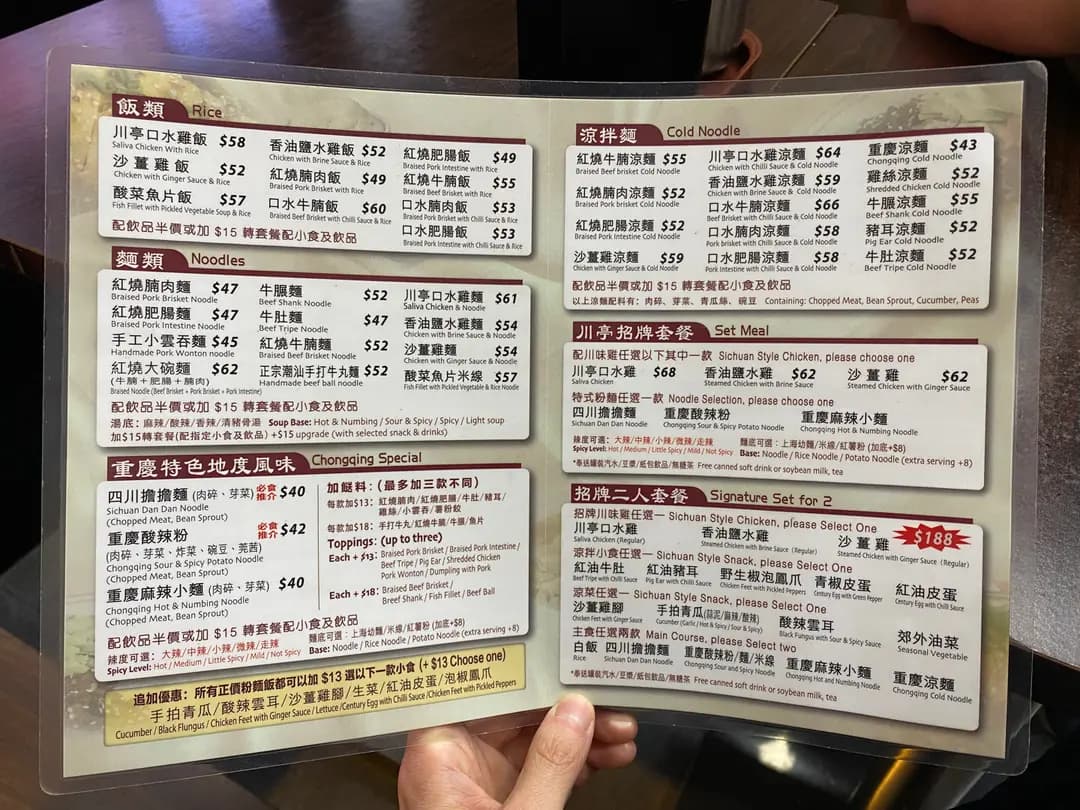 飯類 Rice
川亭口水雞飯 $58
Saliva Chicken With Rice
沙薑雞飯 $52
Chicken with Ginger Sauce & Rice
酸菜魚片飯 $57
Fish Fillet with Pickled Vegetable Soup & Rice
香油鹽水雞飯 $52
Chicken with Brine Sauce & Rice
紅燒腩肉飯 $49
Braised Pork Brisket with Rice
口水牛腩飯 $60
Braised Beef Brisket with Chilli Sauce & Rice
紅燒肥腸飯 $49
Braised Pork Intestine with Rice
紅燒牛腩飯 $55
Braised Beef Brisket with Rice
口水腩肉飯 $53
Braised Pork Brisket with Chilli Sauce & Rice
口水肥腸飯 $53
Braised Pork Intestine with Chilli Sauce & Rice
配飲品半價或加 $15 轉套餐配小食及飲品
麵類 Noodles
紅燒腩肉麵 $47
Braised Pork Brisket Noodle
紅燒肥腸麵 $47
Braised Pork Intestine Noodle
手工小雲吞麵 $45
Handmade Pork Wonton noodle
紅燒大碗麵 $62
(牛腩+肥腸+腩肉)
Braised Noodle (Beef Brisket + Pork Brisket + Pork Intestine)
牛𦟌麵 $52
Beef Shank Noodle
牛肚麵 $47
Beef Tripe Noodle
紅燒牛腩麵 $52
Braised Beef Brisket Noodle
正宗潮汕手打牛丸麵 $52
Handmade beef ball noodle
川亭口水雞麵 $61
Saliva Chicken & Noodle
香油鹽水雞麵 $54
Chicken with Brine Sauce & Noodle
沙薑雞麵 $54
Chicken with Ginger Sauce & Noodle
酸菜魚片米線 $57
Fish Fillet with Pickled Vegetable & Rice Noodle
配飲品半價或加 $15 轉套餐配小食及飲品
湯底: 麻辣/酸辣/香辣/清豬骨湯 Soup Base: Hot & Numbing / Sour & Spicy / Spicy / Light soup
加$15轉套餐(配指定小食及飲品) +$15 upgrade (with selected snack & drinks)
重慶特色地度風味 Chongqing Special
四川擔擔麵 (肉碎、芽菜) 必食推介 $40
Sichuan Dan Dan Noodle
(Chopped Meat, Bean Sprout)
重慶酸辣粉 必食推介 $42
(肉碎、芽菜、炸菜、碗豆、芫茜)
Chongqing Sour & Spicy Potato Noodle
(Chopped Meat, Bean Sprout)
重慶麻辣小麵 (肉碎、芽菜) $40
Chongqing Hot & Numbing Noodle
(Chopped Meat, Bean Sprout)
加餸料: (最多加三款不同)
每款加$13: 紅燒腩肉/紅燒肥腸/牛肚/豬耳/
雞絲/小雲吞/薯粉餃
每款加$18: 手打牛丸/紅燒牛腩/牛𦟌/魚片
Toppings: (up to three)
Each + $13: Braised Pork Brisket / Braised Pork Intestine /
Beef Tripe / Pig Ear / Shredded Chicken
Pork Wonton / Dumpling with Pork
Each + $18: Braised Beef Brisket /
Beef Shank / Fish Fillet / Beef Ball
配飲品半價或加 $15 轉套餐配小食及飲品
辣度可選: 大辣/中辣/小辣/微辣/走辣 麵底可選: 上海幼麵/米線/紅薯粉 (加底+$8)
Spicy Level: Hot / Medium / Little Spicy / Mild / Not Spicy Base: Noodle / Rice Noodle / Potato Noodle (extra serving +8)
追加優惠: 所有正價粉麵飯都可以加 $13 選以下一款小食 (+ $13 Choose one)
手拍青瓜/酸辣雲耳/沙薑雞腳/生菜/紅油皮蛋/泡椒鳳爪
Cucumber / Black Flungus / Chicken Feet with Ginger Sauce / Lettuce /Century Egg with Chilli Sauce /Chicken Feet with Pickled Peppers
涼拌麵 Cold Noodle
紅燒牛腩涼麵 $55
Braised Beef brisket Cold Noodle
紅燒腩肉涼麵 $52
Braised Pork brisket Cold Noodle
紅燒肥腸涼麵 $52
Braised Pork Intestine Cold Noodle
沙薑雞涼麵 $59
Chicken with Ginger Sauce & Cold Noodle
川亭口水雞涼麵 $64
Chicken with Chilli Sauce & Cold Noodle
香油鹽水雞涼麵 $59
Chicken with Brine Sauce & Cold Noodle
口水牛腩涼麵 $66
Beef Brisket with Chilli Sauce & Cold Noodle
口水腩肉涼麵 $58
Pork brisket with Chilli Sauce & Cold Noodle
口水肥腸涼麵 $58
Pork Intestine with Chilli Sauce & Cold Noodle
重慶涼麵 $43
Chongqing Cold Noodle
雞絲涼麵 $52
Shredded Chicken Cold Noodle
牛𦟌涼麵 $55
Beef Shank Cold Noodle
豬耳涼麵 $52
Pig Ear Cold Noodle
牛肚涼麵 $52
Beef Tripe Cold Noodle
配飲品半價或加 $15 轉套餐配小食及飲品
以上涼麵配料有: 肉碎、芽菜、青瓜絲、碗豆 Containing: Chopped Meat, Bean Sprout, Cucumber, Peas
川亭招牌套餐 Set Meal
配川味雞任選以下其中一款 Sichuan Style Chicken, please choose one
川亭口水雞 $68
Saliva Chicken
香油鹽水雞 $62
Steamed Chicken with Brine Sauce
沙薑雞 $62
Steamed Chicken with Ginger Sauce
特式粉麵任選一款 Noodle Selection, please choose one
四川擔擔麵
Sichuan Dan Dan Noodle
重慶酸辣粉
Chongqing Sour & Spicy Potato Noodle
重慶麻辣小麵
Chongqing Hot & Numbing Noodle
辣度可選: 大辣/中辣/小辣/微辣/走辣 麵底可選: 上海幼麵/米線/紅薯粉 (加底+$8)
Spicy Level: Hot / Medium / Little Spicy / Mild / Not Spicy Base: Noodle / Rice Noodle / Potato Noodle (extra serving +8)
*奉送罐裝汽水/豆漿/紙包飲品/無糖茶 Free canned soft drink or soybean milk, tea
招牌二人套餐 Signature Set for 2
$188
招牌川味雞任選一 Sichuan Style Chicken, please Select One
川亭口水雞
Saliva Chicken (Regular)
香油鹽水雞
Steamed Chicken with Brine Sauce (Regular)
沙薑雞
Steamed Chicken with Ginger Sauce (Regular)
涼拌小食任選一 Sichuan Style Snack, please Select One
紅油牛肚
Beef Tripe with Chilli Sauce
紅油豬耳
Pig Ear with Chilli Sauce
野生椒泡鳳爪
Chicken Feet with Pickled Peppers
青椒皮蛋
Century Egg with Green Pepper
紅油皮蛋
Century Egg with Chilli Sauce
涼菜任選一 Sichuan Style Snack, please Select One
沙薑雞腳
Chicken Feet with Ginger Sauce
手拍青瓜(蒜泥/麻辣/酸辣)
Cucumber (Garlic / Hot & Spicy / Sour & Spicy)
酸辣雲耳
Black Fungus with Sour & Spicy Sauce
郊外油菜
Seasonal Vegetable
主食任選兩款 Main Course, please Select two
白飯
Rice
四川擔擔麵
Sichuan Dan Dan Noodle
重慶酸辣粉/麵/米線
Chongqing Sour and Spicy Noodle
重慶麻辣小麵
Chongqing Hot and Numbing Noodle
重慶涼麵
Chongqing Cold Noodle
*奉送罐裝汽水/豆漿/紙包飲品/無糖茶 Free canned soft drink or soybean milk, tea